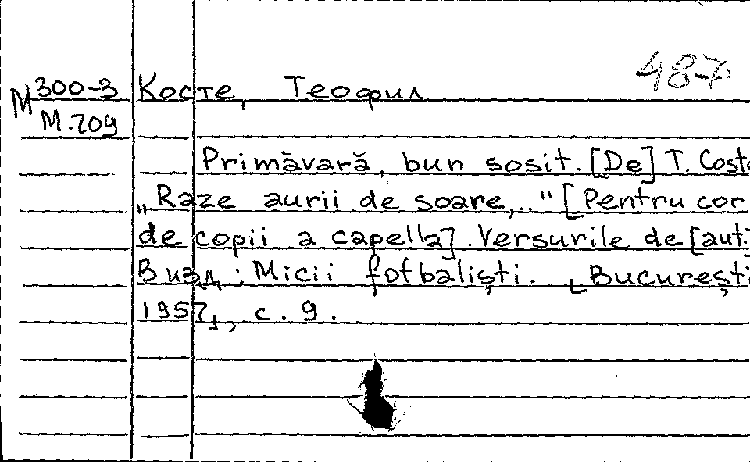 487
М 300-3 Косте, Теофил
М.709
Primăvară, bun sosit. [De] T. Coste
„Raze aurii de soare,.." [Pentru cor
de copii a capella]. Versurile de [aut.]
В изд.: Micii fotbaliști. [București
1957], с. 9.